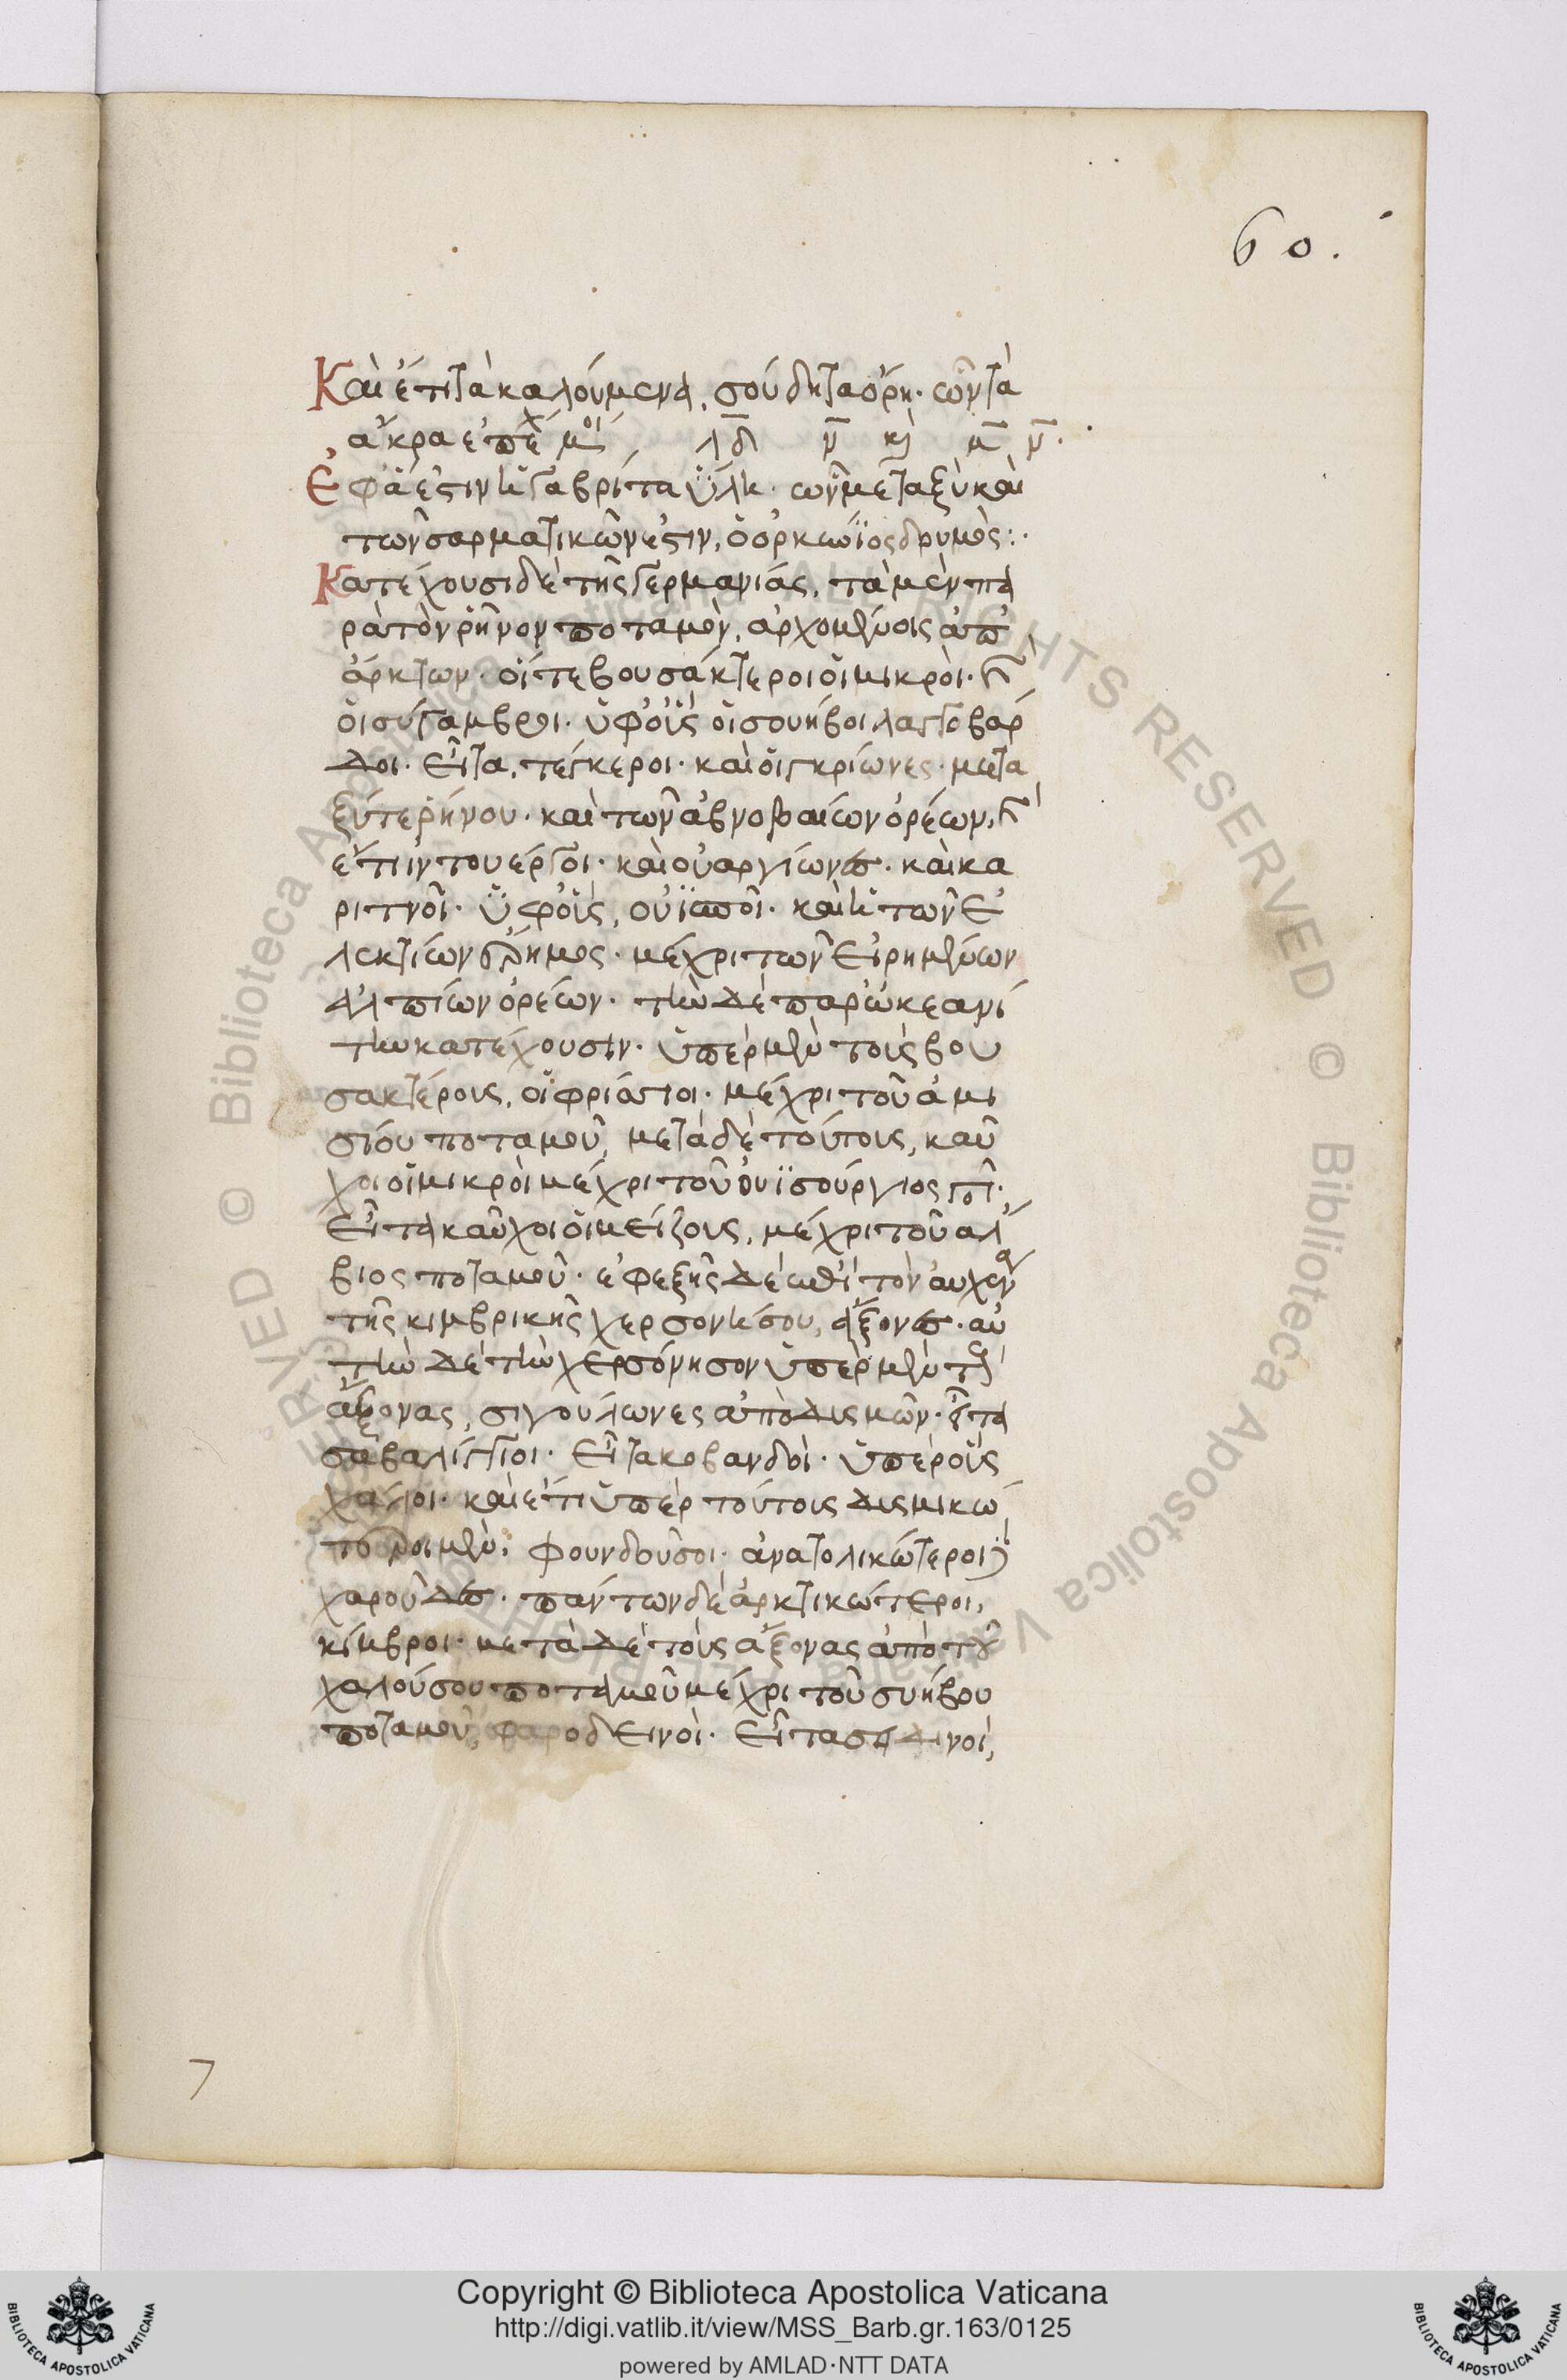 60.
Καὶ ἔτι τὰ καλούμενα, σούδητα ὄρη· ὧν τὰ
ἄκρα ἐπέχ μοί, λδ ν κὶ μ ν·
Ἐφ ἅ ἐστιν ἡ γαβρίτα ὕλη· ὧν μεταξὺ καὶ
τῶν σαρματικῶν ἐστιν, ὁ ὀρκώϊος δρυμὸς:·
Κατέχουσι δὲ τῆς γερμανιάς, τὰ μὲν πα
ρὰ τὸν ῥῆνον ποταμὸν, ἀρχομένοις ἀπ
ἄρκτων· οἵ τε βουσάκτεροι οἱ μικροὶ· κ
οἱ σύγαμβροι· ὑφ οἷς οἱ σουηβοι λαγγοβάρ
δοι· εἶτα, τέγκεροι· καὶ οἱ γκρίωνες· μετα
ξύ τε ῥήνου· καὶ τῶν ἀβνοβαίων ὀρέων, κ
ἔτι ἰντουέργοι· καὶ οὐαργίωνες· καὶ κα
ριτνοί· ὑφ οἷς, οὐϊσποὶ· καὶ ἡ τῶν ἐ
λεκτίων ἔρημος· μέχρι τῶν εἰρημένων
ἀλπίων ὀρέων· τὴν δὲ παρώκεανί
την κατέχουσιν· ὑπὲρ μὲν τοὶς βου
σακτέροις, οἱ φρίσιοι· μέχρι τοῦ ἀμι
σίου ποταμοῦ, μετὰ δὲ τούτοις, καῦ
χοι οἱ μικροὶ μέχρι τοῦ οὐϊσούργιος π·
Εἶτα καῦχοι οἱ μείζους, μέχρι τοῦ ἄλ
βιος ποταμοῦ· ἐφεξῆς δὲ ἐπὶ τὸν αὐχένα
τῆς κιμβρικῆς χερσονήσου, ἄξονες· αὐ
τὴν δὲ τὴν χερσόνησον ὑπὲρ μὲν τοὺς
ἄξονας, σιγούλωνες ἀπὸ δισμῶν· εἶτα
σαβαλίγγιοι· Εἶτα κοβανδοὶ· ὑπὲρ οὓς
χάλιοι· καὶ ἔτι ὑπὲρ τούτοις δισμικώ
τεροι μὲν· φουνδοῦσοι· ἀνατολικώτεροι δὲ
χαροῦδες· πάντων δὲ ἀρκτικώτεροι,
κίμβροι· μετὰ δὲ τοὺς ἄξονας ἀπὸ τοῦ
χαλούσου ποταμοῦ μέχρι τοῦ συήβου
ποταμοῦ, φαροδεινοὶ· Εἶτα σειδινοὶ,
7
Copyright © Biblioteca Apostolica Vaticana
http://digi.vatlib.it/view/MSS_Barb.gr.163/0125
powered by AMLAD·NTT DATA